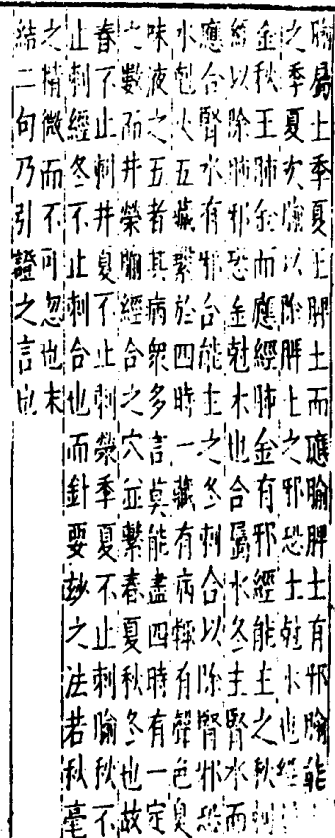 腧屬土季夏王脾土而應腧脾土有邪腧能
之季夏次腧以除脾土之邪恐土尅水也經
金秋王肺金而應經肺金有邪經能主之秋刺
經以除肺邪恐金尅木也合屬水冬主腎水而
應合腎水有邪合能主之冬刺合以除腎邪恐
水尅火五藏繫於四時一藏有病輙有聲色臭
味液之五者其病衆多言莫能盡四時有一定
之數而井榮腧經合之穴並繫春夏秋冬也故
春不止刺井夏不止刺榮季夏不止刺腧秋不
止刺經冬不止刺合也而針要玅之法若秋毫
之精微而不可忽也末
結二句乃引證之言也